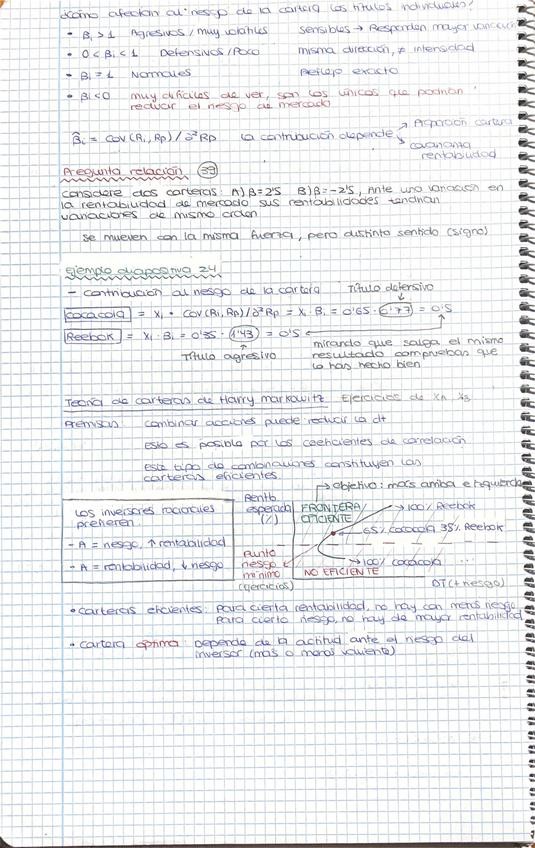 ¿Cómo afectan al riesgo de la cartera los títulos individuales?
• Bi > 1 Agresivos / muy volátiles sensibles → Responden mayor variación
• 0 < Bi < 1 Defensivos / Poco misma dirección, ≠ intensidad
• Bi = 1 Normales Reflejo exacto
• Bi < 0 muy difíciles de ver, son los únicos que podrían
reducir el riesgo de mercado
B̂i = COV (Ri, Rp) / ∂² Rp La contribución depende
Proporción cartera
covarianza
rentabilidad
Pregunta relación 39
considere dos carteras: A) B = 2'5 B) B = -2'5, Ante una variación en
la rentabilidad de mercado sus rentabilidades tendrían
variaciones de mismo orden
Se mueven con la misma fuerza, pero distinto sentido (signo)
Ejemplo diapositiva 24
- Contribución al riesgo de la cartera Título defensivo
Cocacola = Xi • COV (Ri, Rp) / ∂² Rp = Xi · Bi = 0'65 · 0'77 = 0'5
Reebok = Xi · Bi = 0'35 · 1'43 = 0'5
Título agresivo
mirando que salga el mismo
resultado compruebas que
lo has hecho bien
Teoría de carteras de Harry Markowitz Ejercicios de
Premisas: combinar acciones puede reducir la dt
esto es posible por los coeficientes de correlación
este tipo de combinaciones constituyen las
carteras eficientes
Los inversores racionales
prefieren
- A = riesgo, ↑ rentabilidad
- A = rentabilidad, ↓ riesgo
Rentb
esperada
(%)
→ objetivo: más arriba e izquierda
FRONTERA
EFICIENTE
→ 100% Reebok
65% Cocacola 35% Reebok
→ 100% Cocacola
Punto
riesgo
mínimo
(ejercicios)
NO EFICIENTE
DT (+ riesgo)
• Carteras eficientes: Para cierta rentabilidad, no hay con menos riesgo
Para cierto riesgo, no hay de mayor rentabilidad
• Cartera óptima: Depende de la actitud ante el riesgo del
inversor (más o menos valiente)